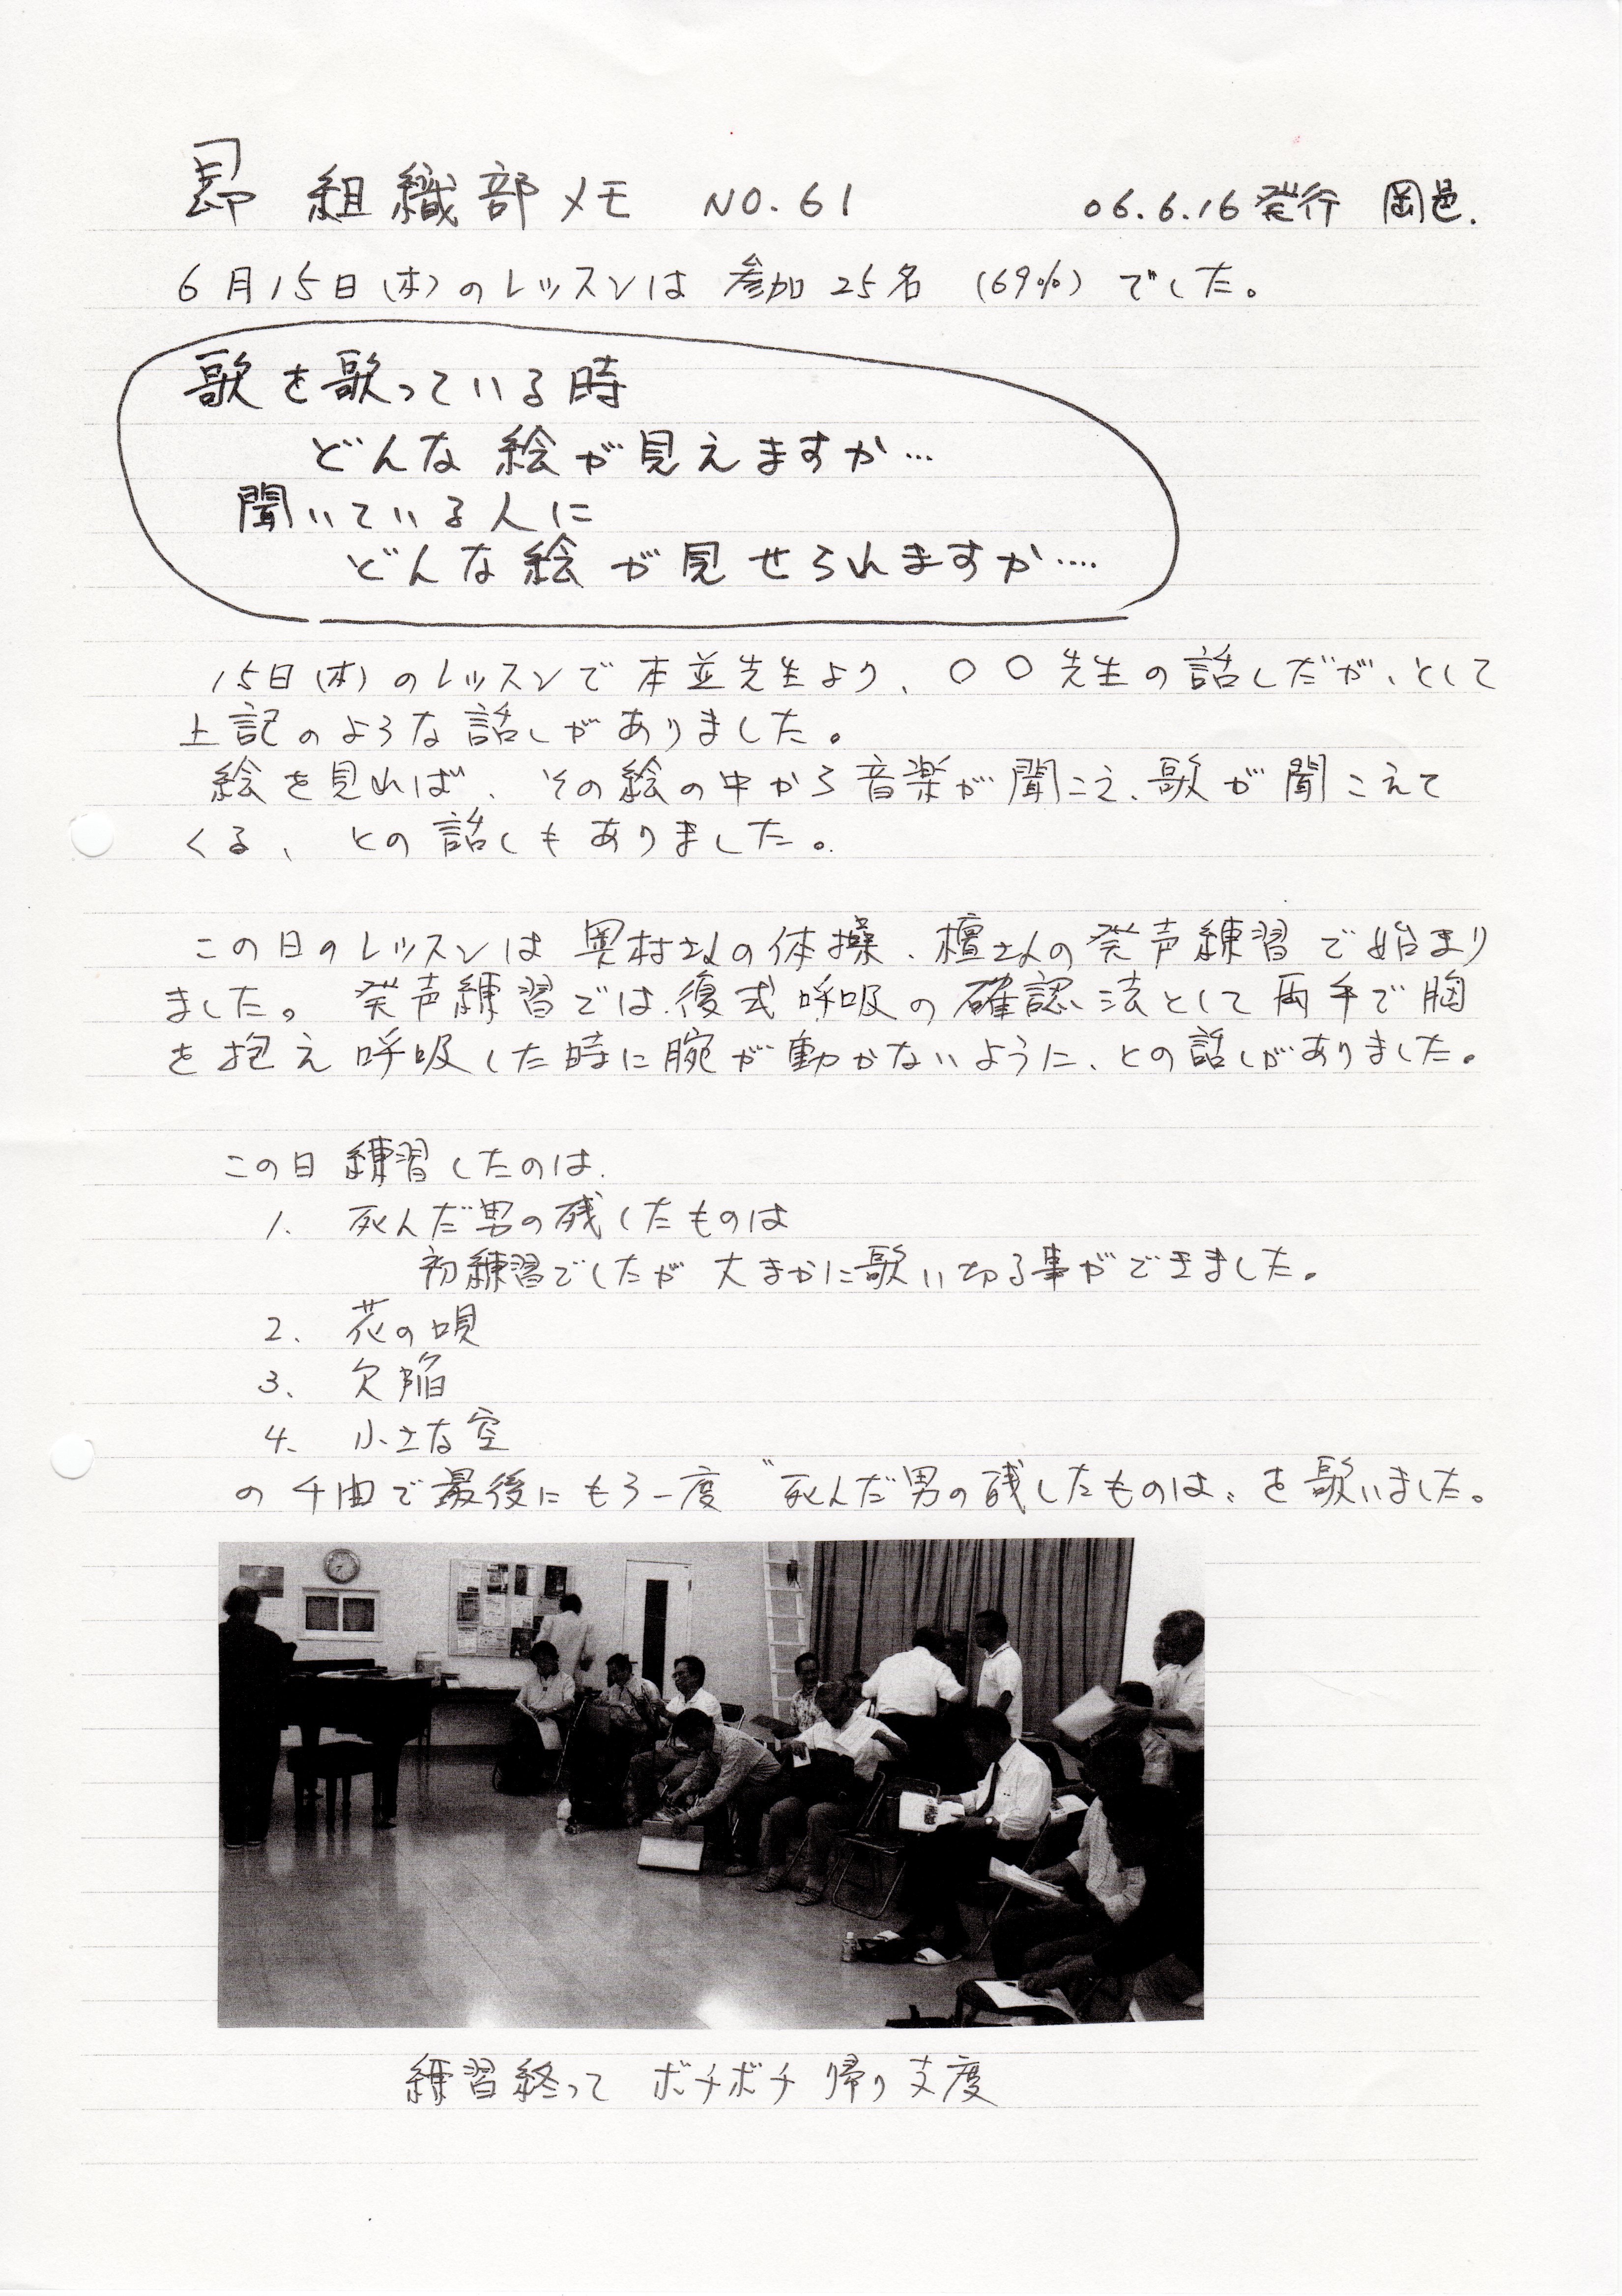 昴 組織部メモ NO.61 06.6.16発行 岡邑.
6月15日(木)のレッスンは 参加25名 (69%) でした。
歌を歌っている時
どんな絵が見えますか…
聞いている人に
どんな絵が見せられますか‥‥
15日(木)のレッスンで本並先生より、〇〇先生の話しだが、として
上記のような話しがありました。
絵を見れば、その絵の中から音楽が聞こえ、歌が聞こえて
くる、との話しもありました。
この日のレッスンは奥村さんの体操、檀さんの発声練習で始まり
ました。発声練習では、復式呼吸の確認法として両手で胸
を抱え呼吸した時に腕が動かないように、との話しがありました。
この日練習したのは、
1. 死んだ男の残したものは
初練習でしたが大まかに歌い切る事ができました。
2. 花の唄
3. 欠陥
4. 小さな空
の4曲で最後にもう一度〝死んだ男の残したものは〟を歌いました。
練習終って ボチボチ帰り支度